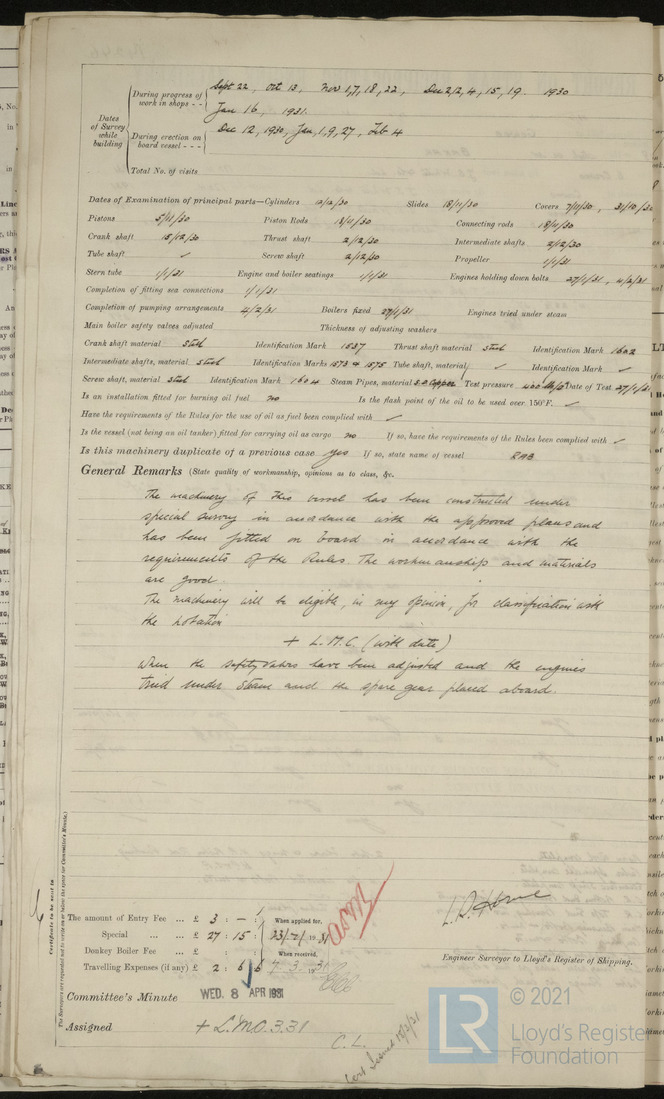 Dates of Survey while building
During progress of work in shops - - Sept 22, Oct 13, Nov 1,7,18,22, Dec 2/2,4,15,19. 1930
Jan 16, 1931.
During erection on board vessel - - - Dec 12, 1930, Jan,1,9,27, Feb 4
Total No. of visits
Dates of Examination of principal parts—Cylinders 12/12/30 Slides 18/11/30 Covers 7/11/30, 31/10/30
Pistons 5/11/30 Piston Rods 13/11/30 Connecting rods 18/11/30
Crank shaft 15/12/30 Thrust shaft 2/12/30 Intermediate shafts 2/12/30
Tube shaft ✓ Screw shaft 2/12/30 Propeller 1/1/31
Stern tube 1/1/31 Engine and boiler seatings 1/1/31 Engines holding down bolts 27/1/31, 4/2/31
Completion of fitting sea connections 1/1/31
Completion of pumping arrangements 4/2/31 Boilers fixed 27/1/31 Engines tried under steam
Main boiler safety valves adjusted Thickness of adjusting washers
Crank shaft material Steel Identification Mark 1537 Thrust shaft material Steel Identification Mark 1602
Intermediate shafts, material Steel Identification Marks 1573 & 1575 Tube shaft, material ✓ Identification Mark ✓
Screw shaft, material Steel Identification Mark 1604 Steam Pipes, material S.D Copper Test pressure 400 lb/□" Date of Test 27/1/31
Is an installation fitted for burning oil fuel no Is the flash point of the oil to be used over 150°F. ✓
Have the requirements of the Rules for the use of oil as fuel been complied with ✓
Is the vessel (not being an oil tanker) fitted for carrying oil as cargo no If so, have the requirements of the Rules been complied with ✓
Is this machinery duplicate of a previous case yes If so, state name of vessel RAB
General Remarks (State quality of workmanship, opinions as to class, &c.
The machinery of this vessel has been constructed under
special survey in accordance with the approved plans and
has been fitted on board in accordance with the
requirements of the Rules. The workmanship and materials
are good.
The machinery will be eligible, in my opinion, for classification with
the notation
+ L.M.C. (with date)
When the safety valves have been adjusted and the engines
tried under steam and the spare gear placed aboard.
Certificate to be sent to
The Surveyors are requested not to write on or below the space for Committee's Minute.
The amount of Entry Fee ... £ 3 : — :
Special ... ... £ 27 : 15 :
Donkey Boiler Fee ... £ : :
Travelling Expenses (if any) £ 2 : 6 : 6
When applied for,
23/2/1931
When received,
7.3.1931
Engineer Surveyor to Lloyd's Register of Shipping.
Committee's Minute WED. 8 APR 1931
Assigned + L.M.C. 3.31
C.L.
Cert Issued 18/3/31
LR
© 2021
Lloyd's Register
Foundation